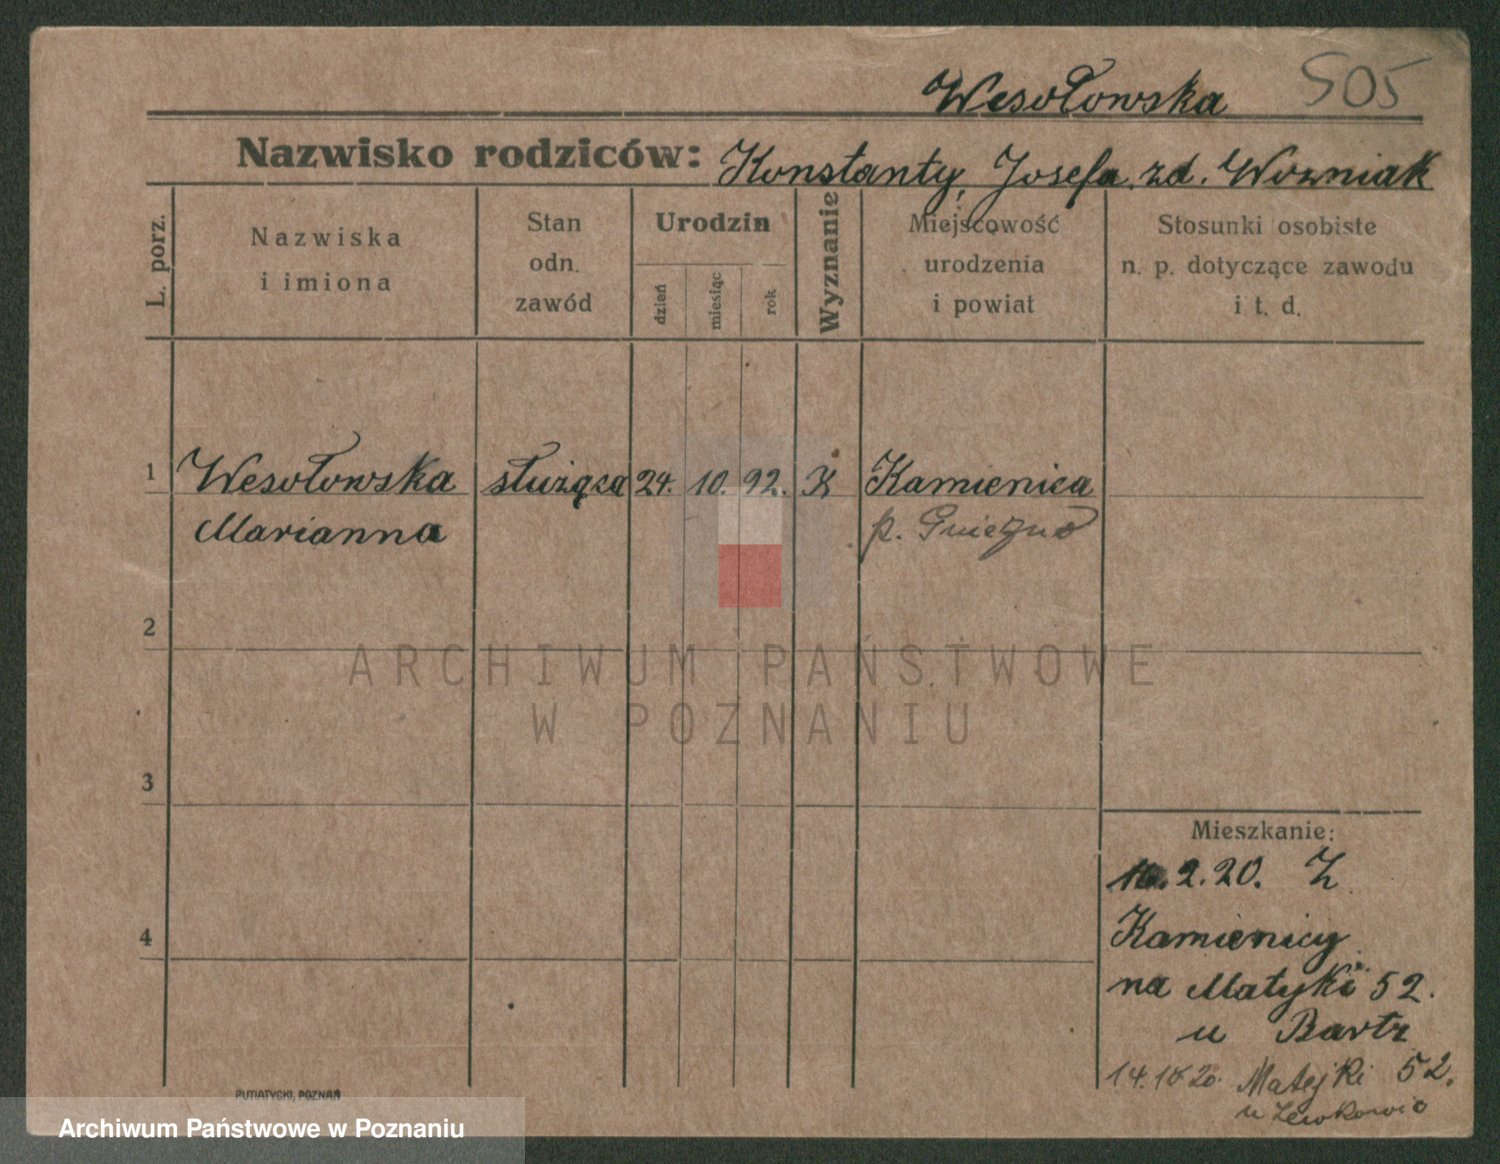 Wesołowska 505
Nazwisko rodziców: Konstanty, Josefa zd. Wozniak
L. porz.
Nazwiska
i imiona
Stan
odn.
zawód
Urodzin
dzień
miesiąc
rok
Wyznanie
Miejscowość
urodzenia
i powiat
Stosunki osobiste
n. p. dotyczące zawodu
i t. d.
1 Wesołowska służąca 24. 10. 92. K Kamienica
Marianna p. Gniezno
2
ARCHIWUM PAŃSTWOWE
W POZNANIU
3
Mieszkanie:
2.20. Z
4 Kamienicy
na Matyki 52.
u Bartz
14.10 20. Matejki 52.
u
PUTIATYCKI, POZNAŃ
Archiwum Państwowe w Poznaniu